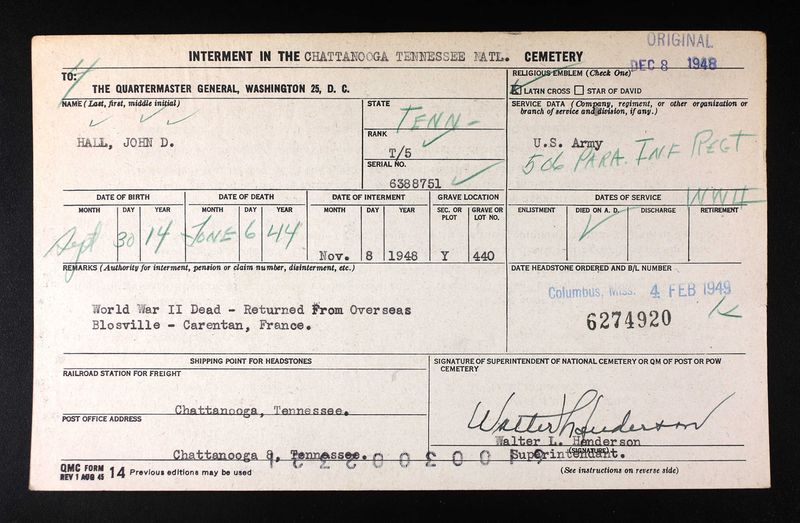 ORIGINAL
INTERMENT IN THE CHATTANOOGA TENNESSEE NATL. CEMETERY
DEC 8 1948
TO:
THE QUARTERMASTER GENERAL, WASHINGTON 25, D. C.
RELIGIOUS EMBLEM (Check One)
X LATIN CROSS STAR OF DAVID
NAME (Last, first, middle initial)
HALL, JOHN D.
STATE
TENN-
RANK
T/5
SERIAL NO.
6388751
SERVICE DATA (Company, regiment, or other organization or
branch of service and division, if any.)
U.S. Army
506 PARA. INF REGT
WWII
DATE OF BIRTH DATE OF DEATH DATE OF INTERMENT GRAVE LOCATION DATES OF SERVICE
MONTH DAY YEAR MONTH DAY YEAR MONTH DAY YEAR SEC. OR PLOT GRAVE OR LOT NO. ENLISTMENT DIED ON A. D. DISCHARGE RETIREMENT
Sept 30 14 JUNE 6 44 Nov. 8 1948 Y 440
REMARKS (Authority for interment, pension or claim number, disinterment, etc.)
World War II Dead - Returned From Overseas
Blosville - Carentan, France.
DATE HEADSTONE ORDERED AND B/L NUMBER
Columbus, Miss. 4 FEB 1949
6274920
SHIPPING POINT FOR HEADSTONES
RAILROAD STATION FOR FREIGHT
Chattanooga, Tennessee.
POST OFFICE ADDRESS
Chattanooga 8, Tennessee.
SIGNATURE OF SUPERINTENDENT OF NATIONAL CEMETERY OR QM OF POST OR POW
CEMETERY
Walter L. Henderson
Walter L. Henderson
(SIGNATURE)
Superintendant.
QMC FORM
REV 1 AUG 45 14 Previous editions may be used
(See instructions on reverse side)